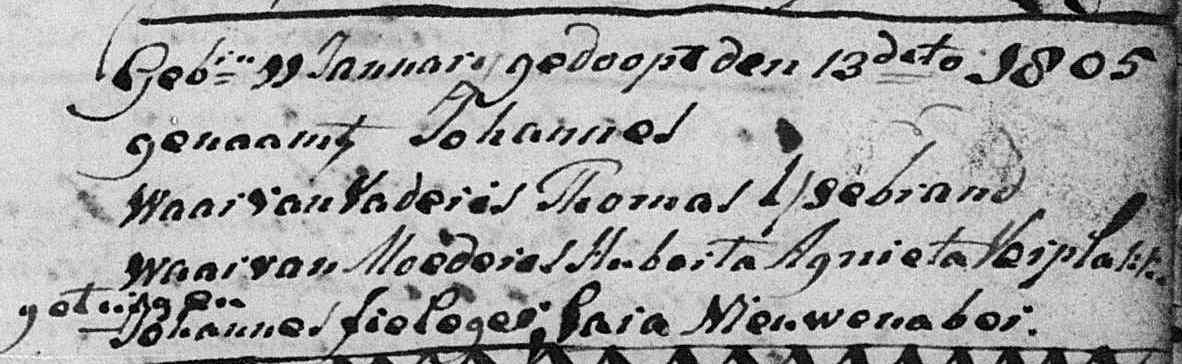 Geb:n 11 Januari, gedoopt den 13 deto 1805
genaamt Johannes
Waar van Vader is Thomas IJsebrand
waar van Moeder is Huberta Agnieta Verplakke
getuigen
Johannes fieleger, Sara Nieuwenaber.